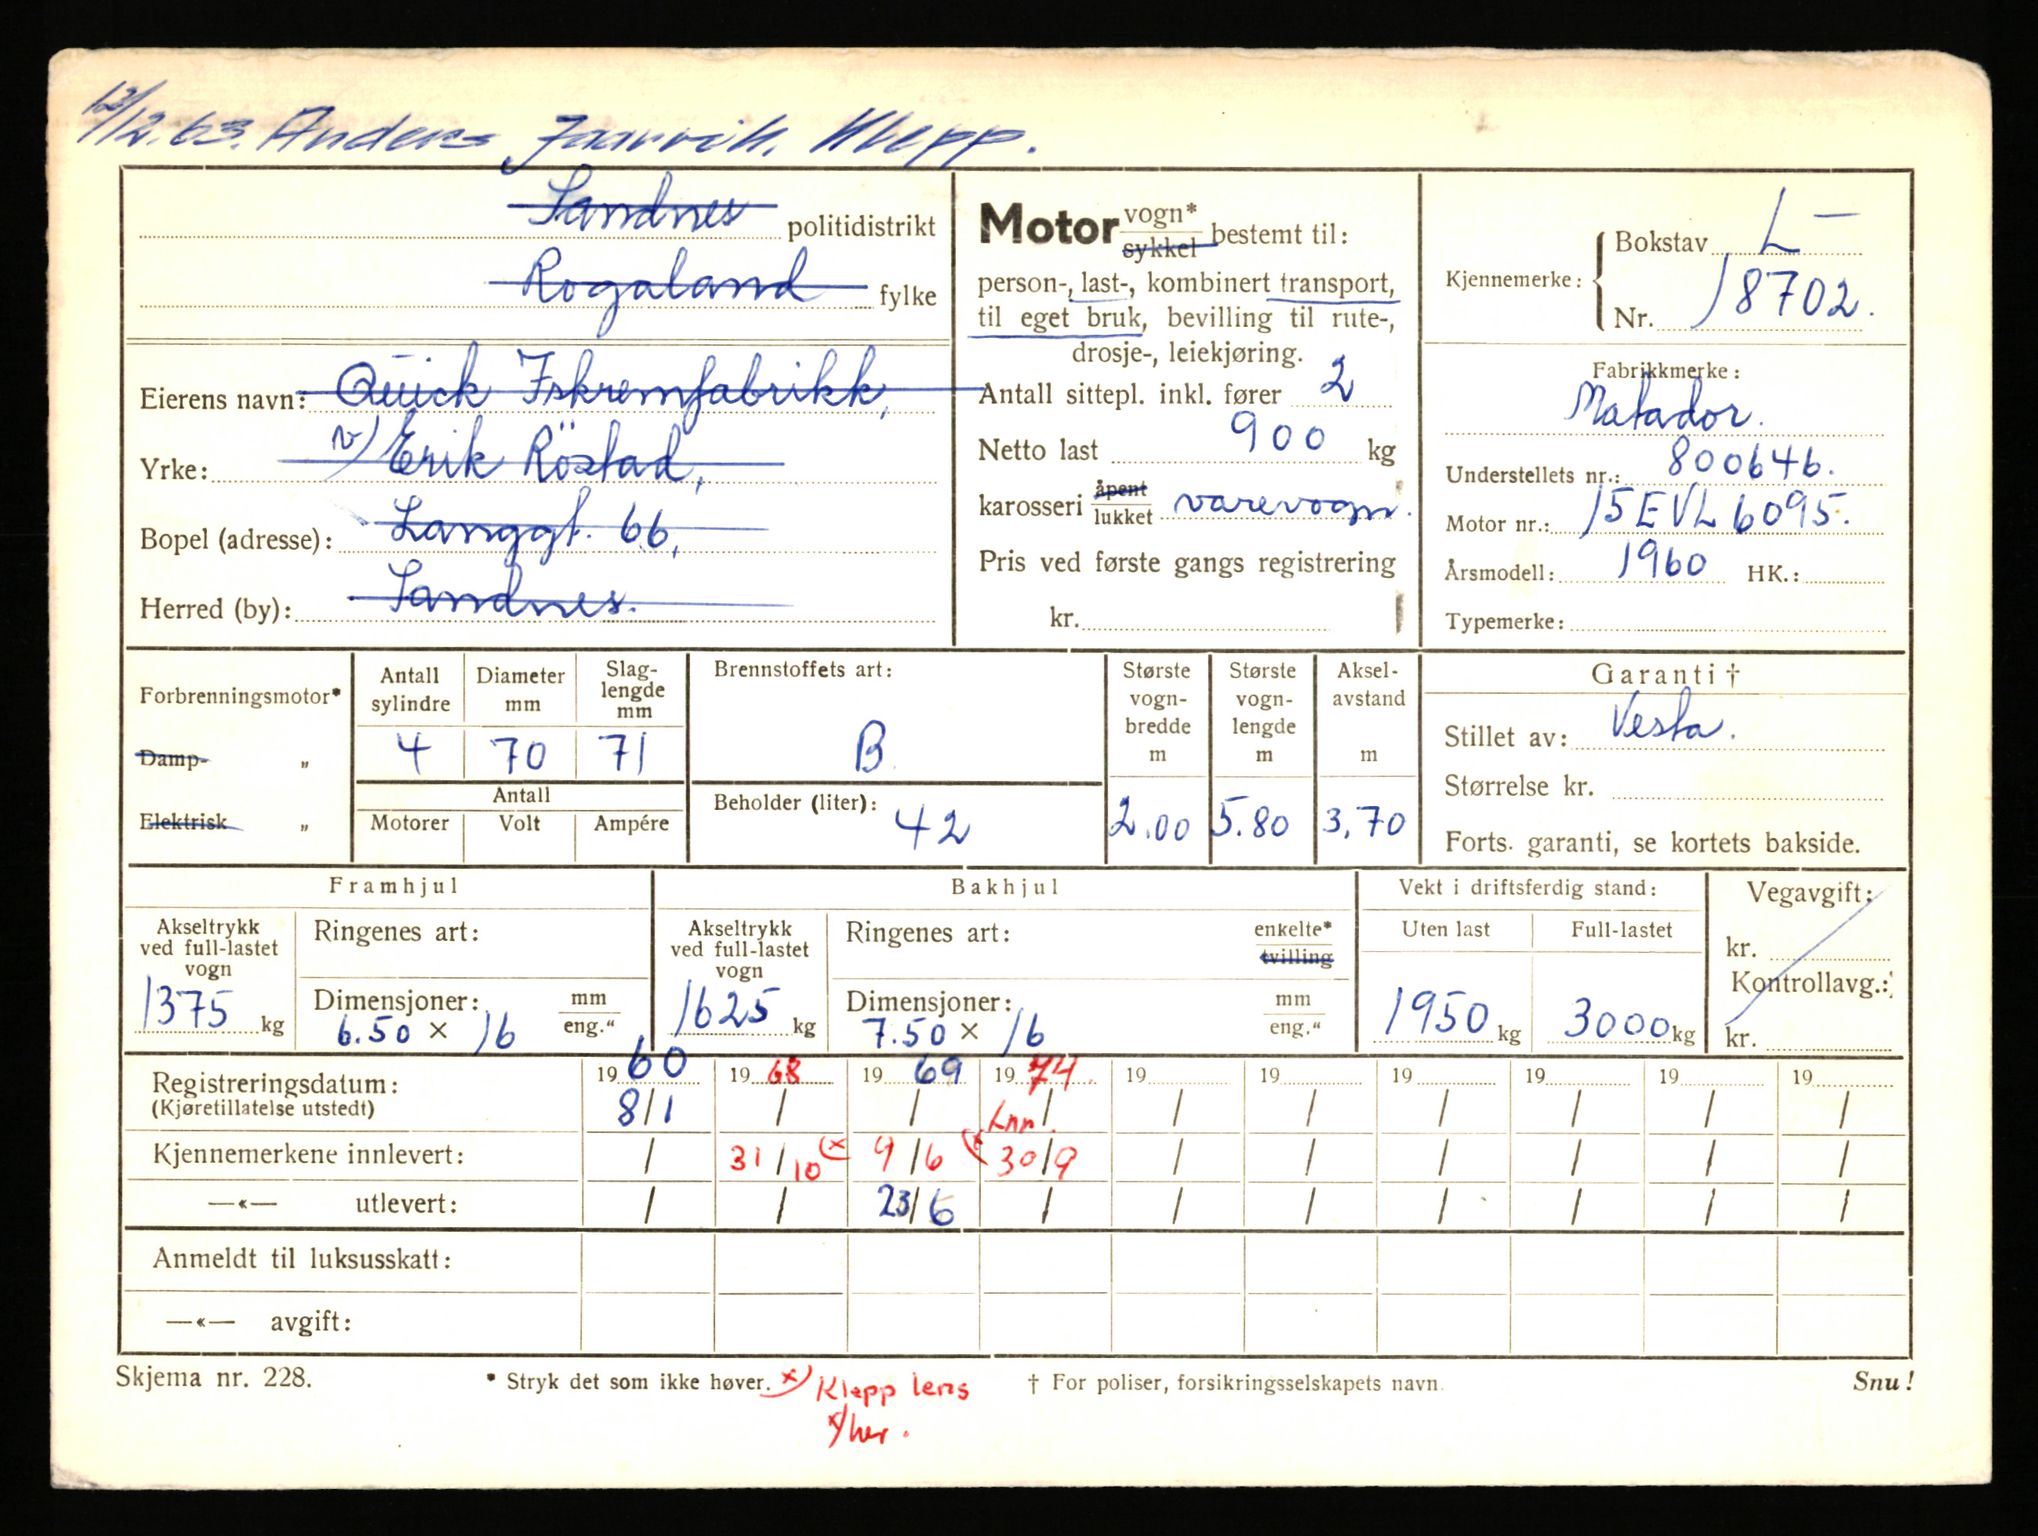 12/12.63. Anders Jaarvik, Klepp.
Sandnes politidistrikt
Rogaland fylke
Eierens navn: Quick Iskremfabrikk,
Yrke: v/ Erik Röstad,
Bopel (adresse): Langgt. 66,
Herred (by): Sandnes.
Motor vogn* sykkel bestemt til:
person-, last-, kombinert transport,
til eget bruk, bevilling til rute-,
drosje-, leiekjøring.
Antall sittepl. inkl. fører 2
Netto last 900 kg
karosseri åpent lukket varevogn.
Pris ved første gangs registrering
kr.
Kjennemerke: Bokstav L -
Nr. 18702.
Fabrikkmerke:
Matador.
Understellets nr.: 800646.
Motor nr.: 15EVL6095.
Årsmodell: 1960 HK.:
Typemerke:
Forbrenningsmotor*
Damp- „
Elektrisk „
Antall sylindre 4
Diameter mm 70
Slag-lengde mm 71
Antall
Motorer Volt Ampére
Brennstoffets art:
B
Beholder (liter): 42
Største vogn-bredde m 2.00
Største vogn-lengde m 5.80
Aksel-avstand m 3,70
Garanti †
Stillet av: Vesta.
Størrelse kr.
Forts. garanti, se kortets bakside.
Framhjul
Akseltrykk ved full-lastet vogn 1375 kg
Ringenes art:
Dimensjoner: mm eng."
6.50 × 16
Bakhjul
Akseltrykk ved full-lastet vogn 1625 kg
Ringenes art: enkelte* tvilling
Dimensjoner: mm eng."
7.50 × 16
Vekt i driftsferdig stand:
Uten last 1950 kg
Full-lastet 3000 kg
Vegavgift:
kr.
Kontrollavg.:
kr.
Registreringsdatum: 1960 1968 1969 1974 19 19 19 19 19 19
(Kjøretillatelse utstedt) 8/1 / / / / / / / / /
Knn.
Kjennemerkene innlevert: / 31/10 (x 9/6 (x 30/9 / / / / / /
—«— utlevert: / / 23/6 / / / / / / /
Anmeldt til luksusskatt:
—«— avgift:
Skjema nr. 228. * Stryk det som ikke høver. x) Klepp lens † For poliser, forsikringsselskapets navn. Snu!
x/her.